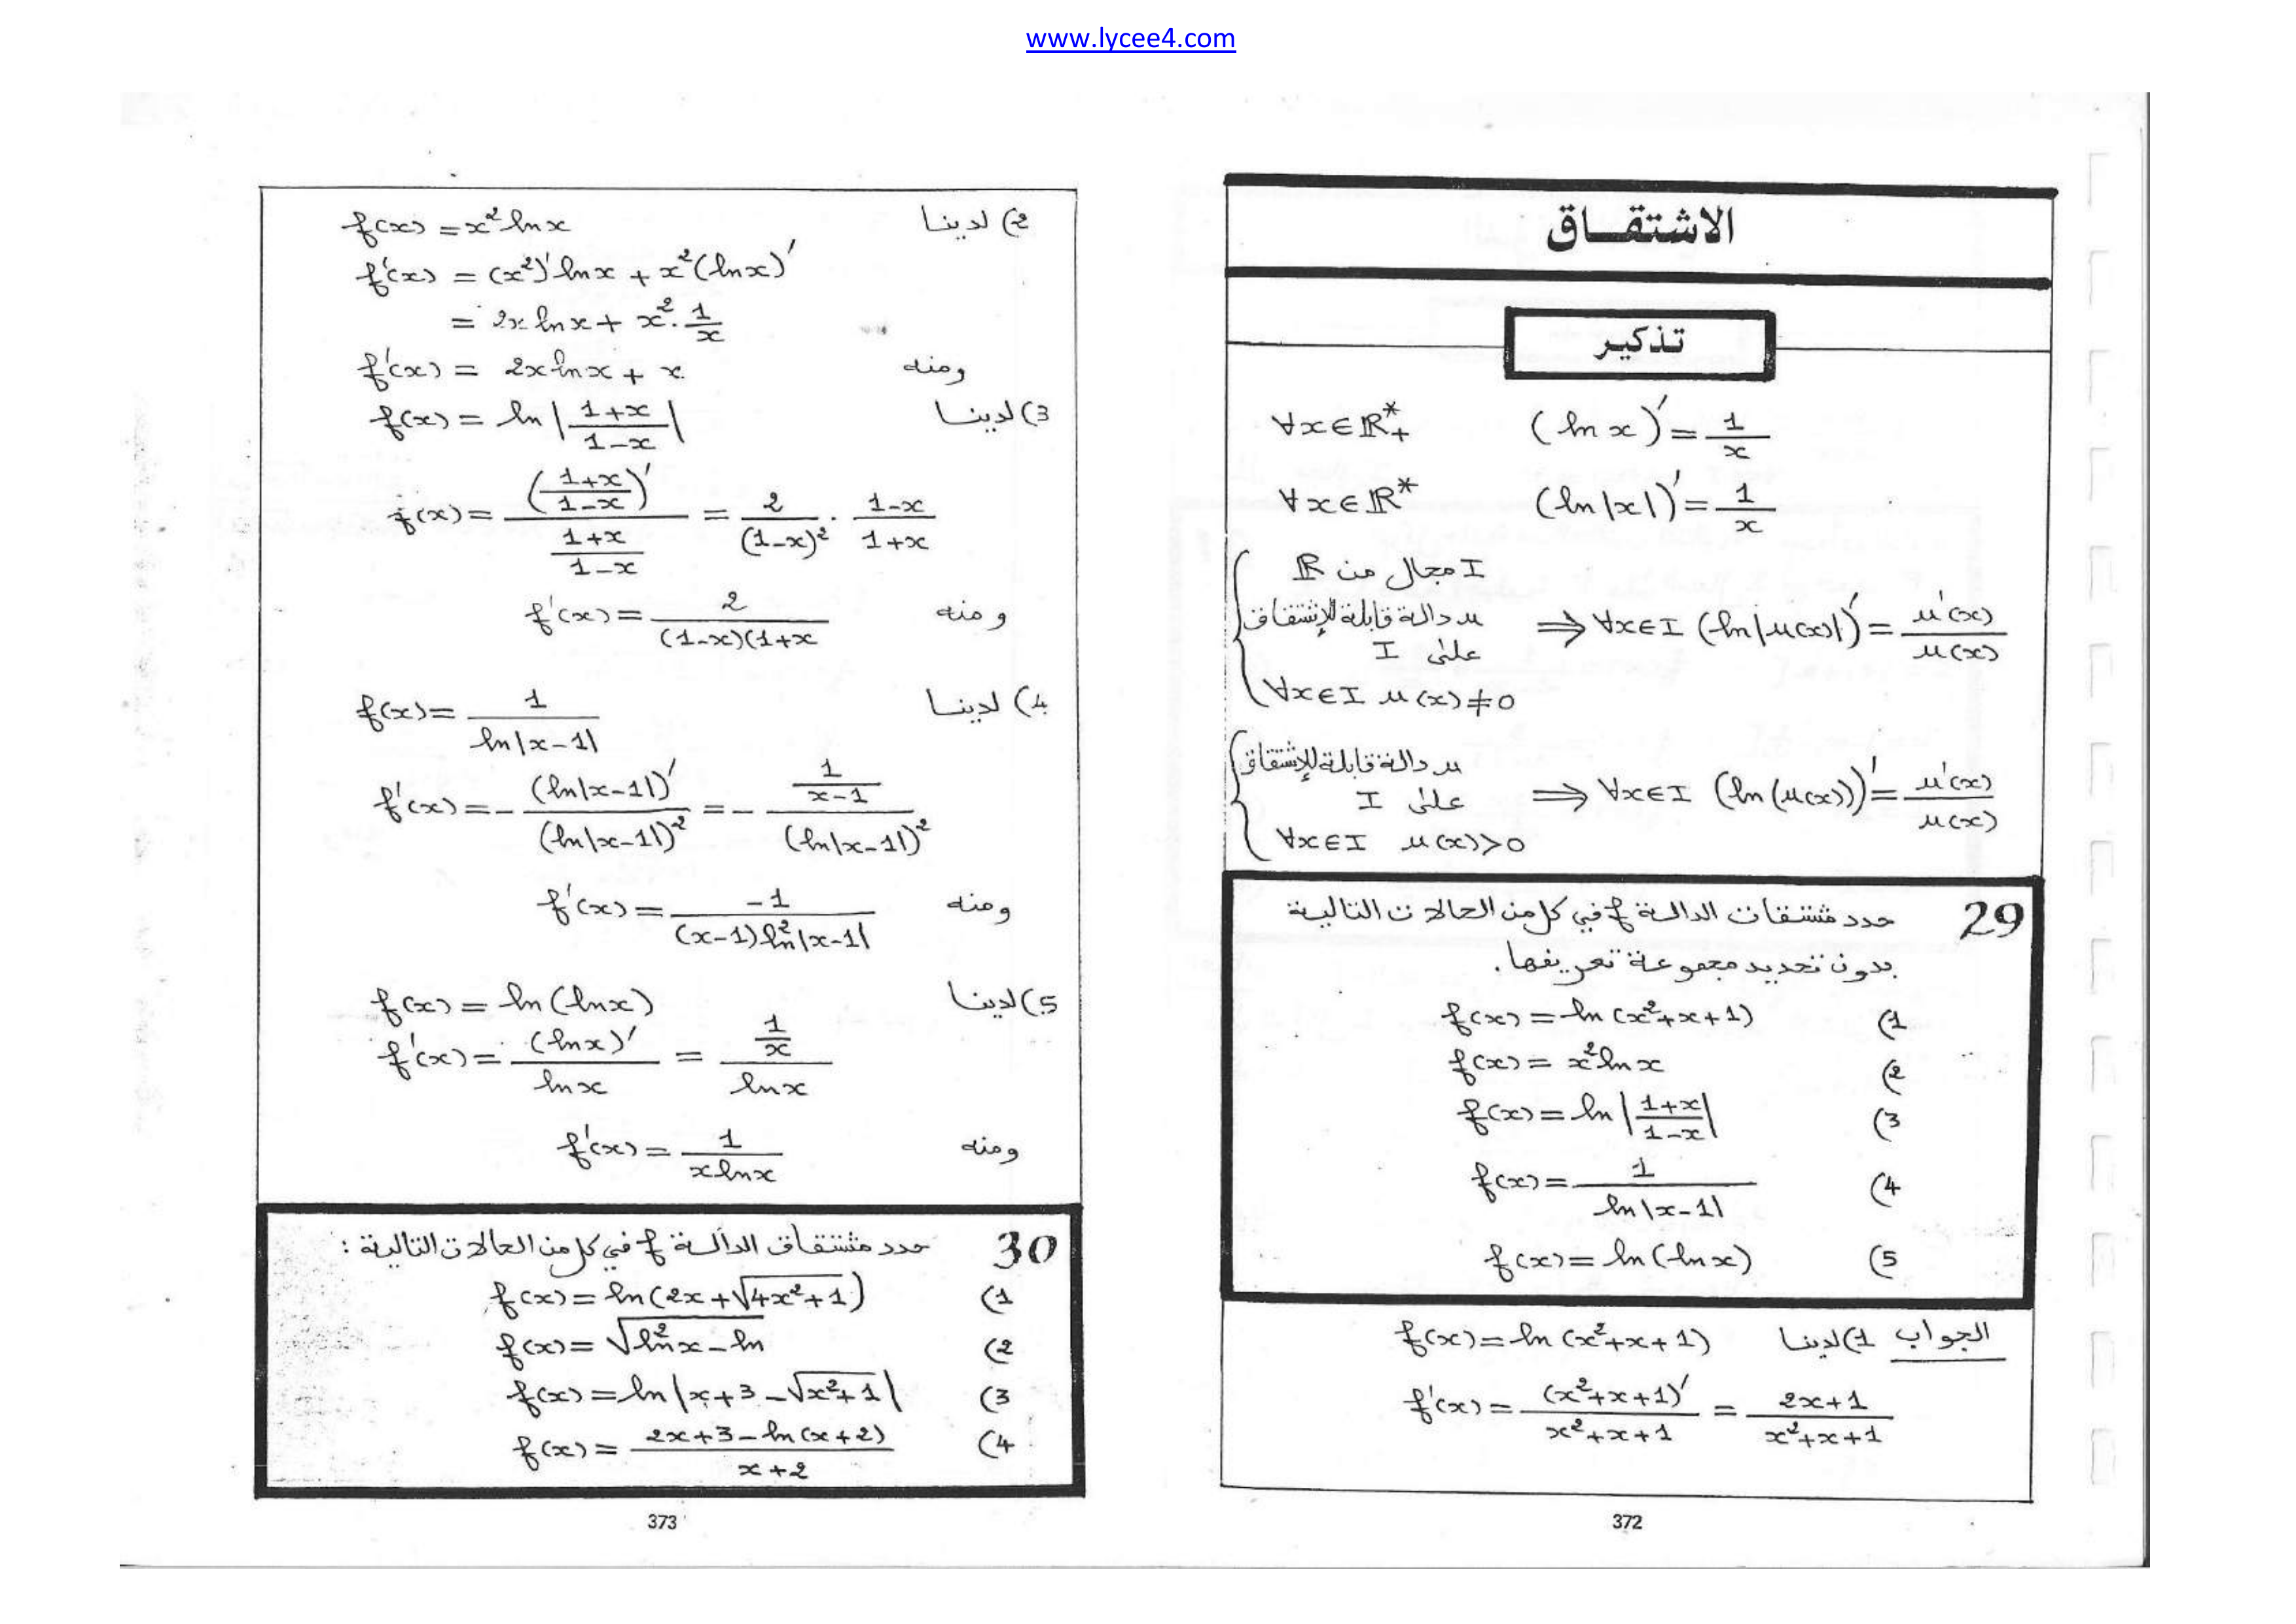 www.lycee4.com
الاشتقاق
تذكير
∀x∈ℝ*₊ (ln x)' = 1/x
∀x∈ℝ* (ln|x|)' = 1/x
I مجال من ℝ
u دالة قابلة للإشتقاق
على I
∀x∈I u(x)≠0
⟹ ∀x∈I (ln|u(x)|)' = u'(x)/u(x)
u دالة قابلة للإشتقاق
على I
∀x∈I u(x)>0
⟹ ∀x∈I (ln(u(x)))' = u'(x)/u(x)
29 حدد مشتقات الدالة f في كل من الحالات التالية
بدون تحديد مجموعة تعريفها.
1) f(x) = ln(x²+x+1)
2) f(x) = x² ln x
3) f(x) = ln|(1+x)/(1-x)|
4) f(x) = 1/ln|x-1|
5) f(x) = ln(ln x)
الجواب 1) لدينا f(x) = ln(x²+x+1)
f'(x) = (x²+x+1)'/(x²+x+1) = (2x+1)/(x²+x+1)
372
2) لدينا f(x) = x² ln x
f'(x) = (x²)' ln x + x² (ln x)'
= 2x ln x + x² . 1/x
ومنه f'(x) = 2x ln x + x
3) لدينا f(x) = ln|(1+x)/(1-x)|
f(x) = ((1+x)/(1-x))' / ((1+x)/(1-x)) = 2/(1-x)² . (1-x)/(1+x)
ومنه f'(x) = 2/(1-x)(1+x
4) لدينا f(x) = 1/ln|x-1|
f'(x) = - (ln|x-1|)'/(ln|x-1|)² = - (1/(x-1))/(ln|x-1|)²
ومنه f'(x) = -1/(x-1) ln²|x-1|
5) لدينا f(x) = ln(ln x)
f'(x) = (ln x)'/ln x = (1/x)/ln x
ومنه f'(x) = 1/x ln x
30 حدد مشتقاق الدالة f في كل من الحالات التالية :
1) f(x) = ln(2x+√(4x²+1))
2) f(x) = √(ln²x - ln
3) f(x) = ln|x+3-√(x²+1)|
4) f(x) = (2x+3-ln(x+2))/(x+2)
373